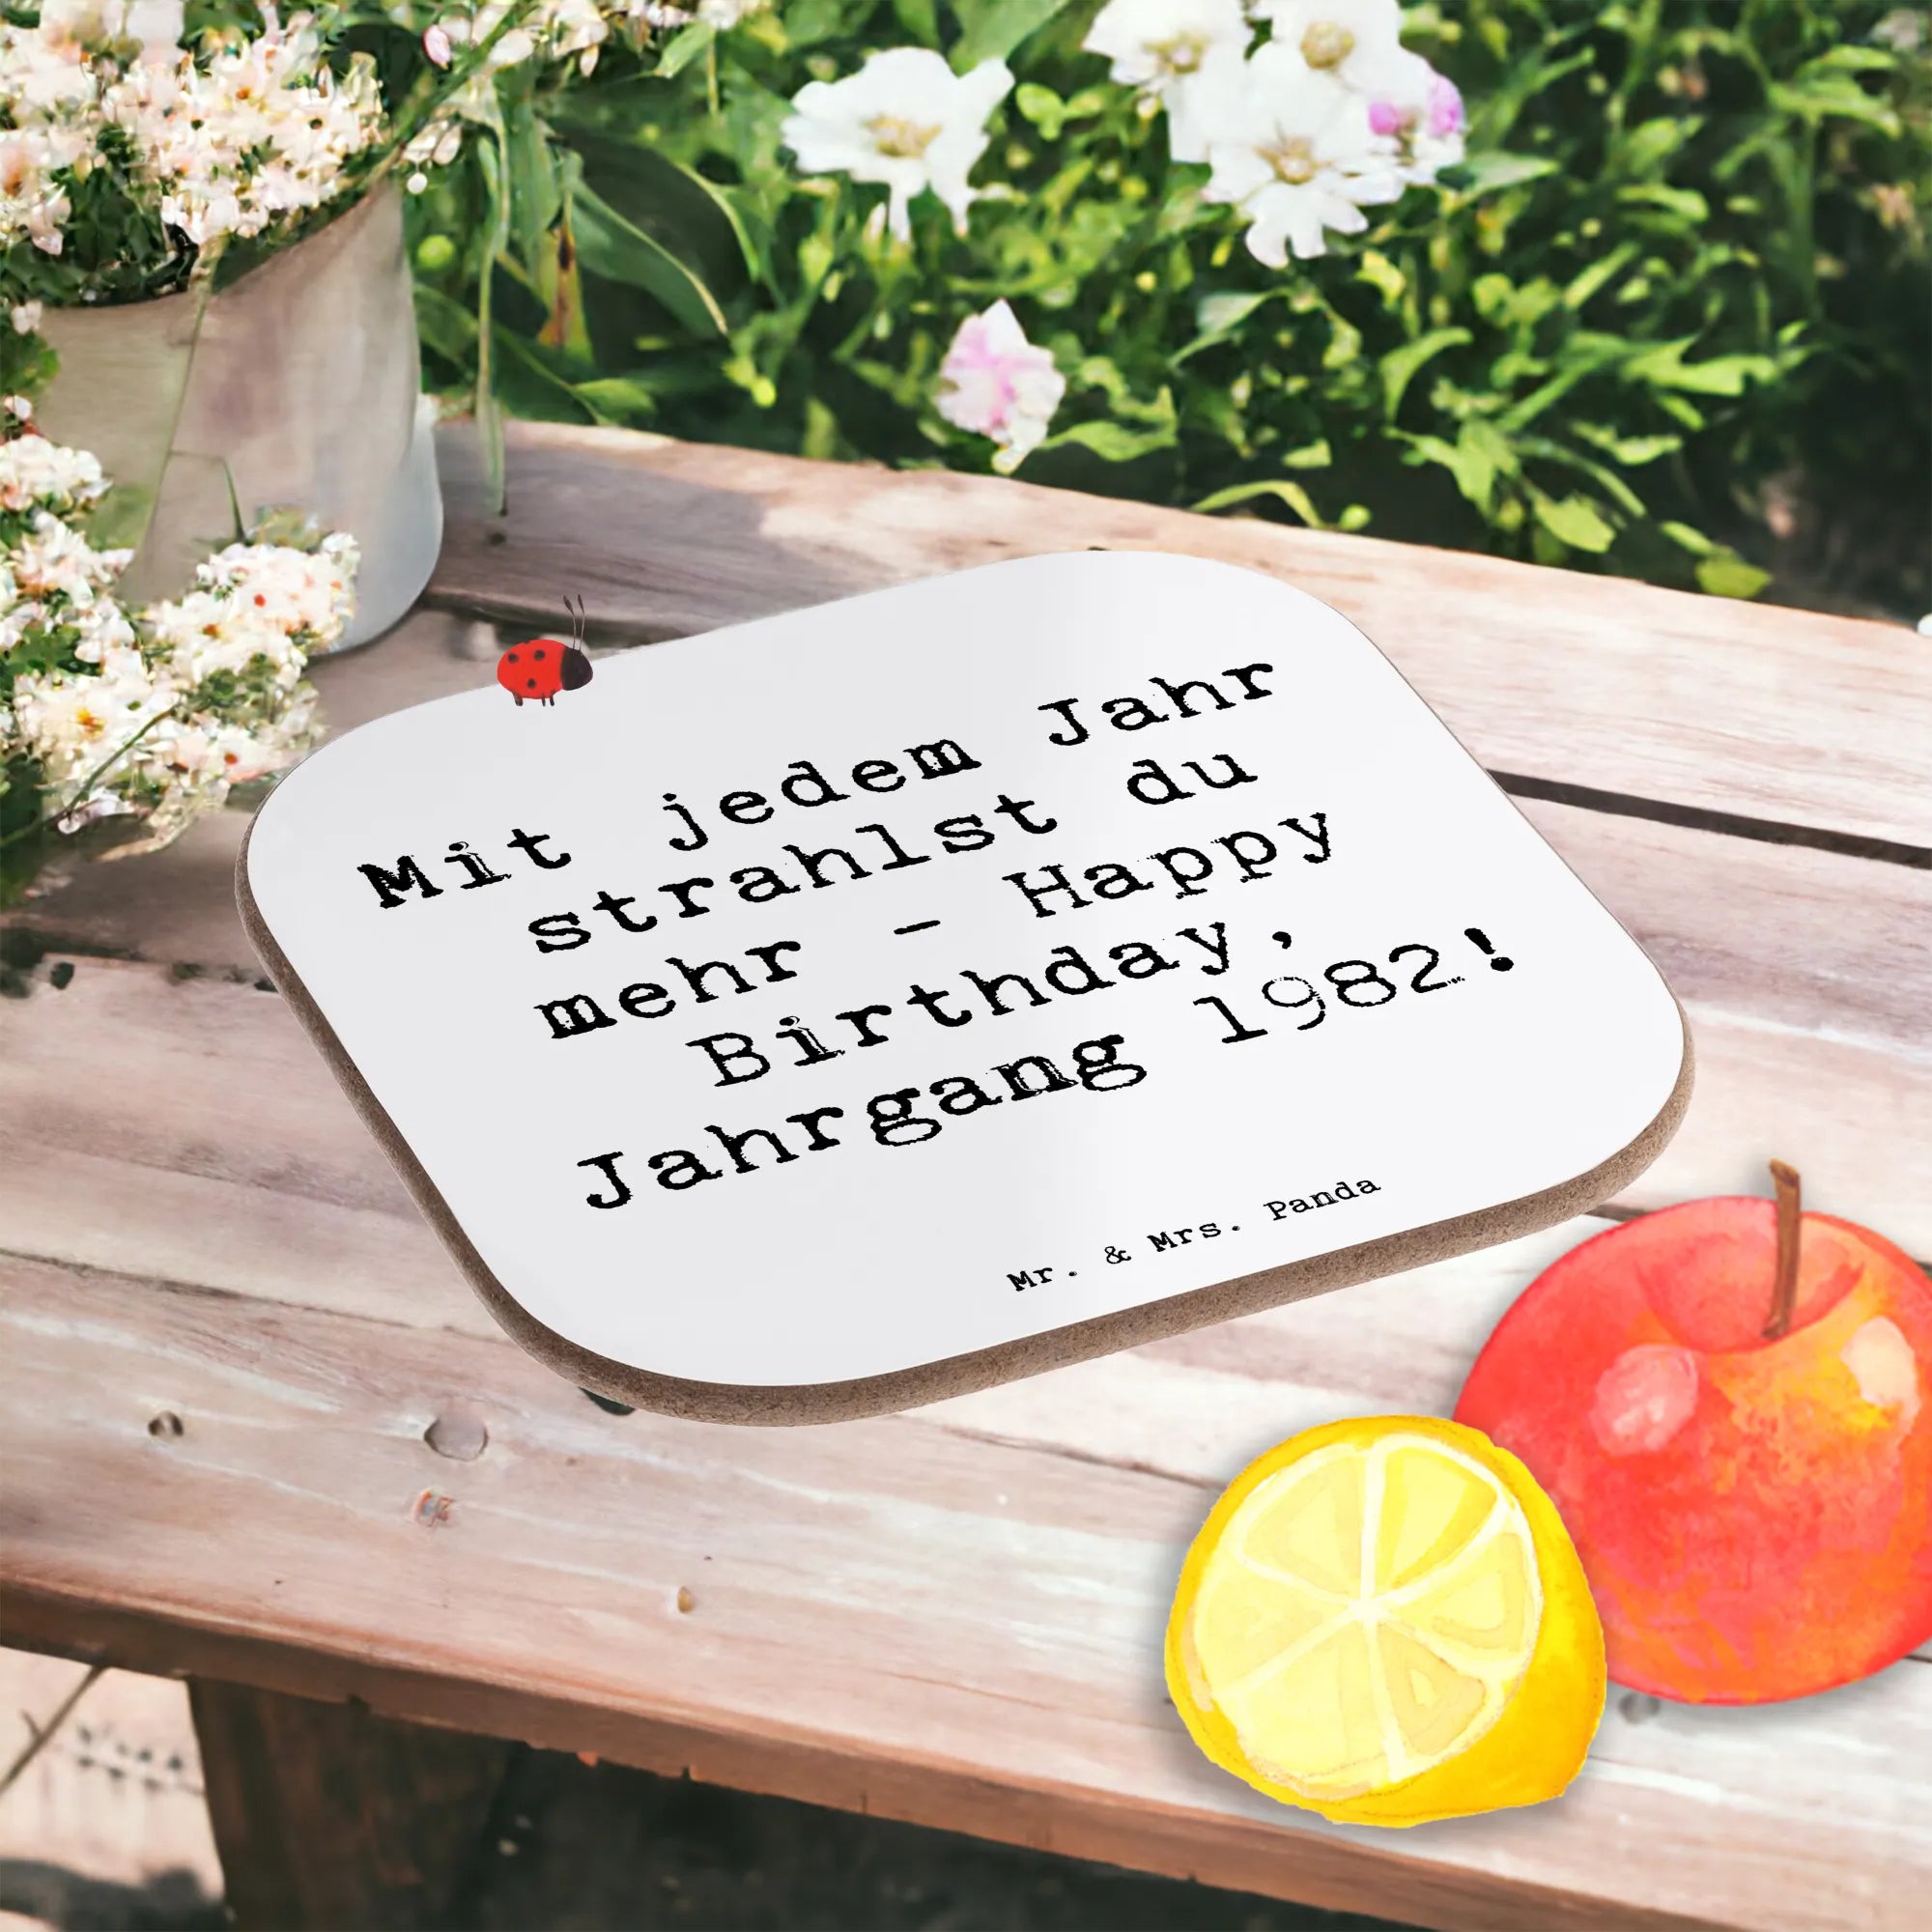 Mit jedem Jahr
strahlst du
mehr - Happy
Birthday,
Jahrgang 1982!
Mr. & Mrs. Panda